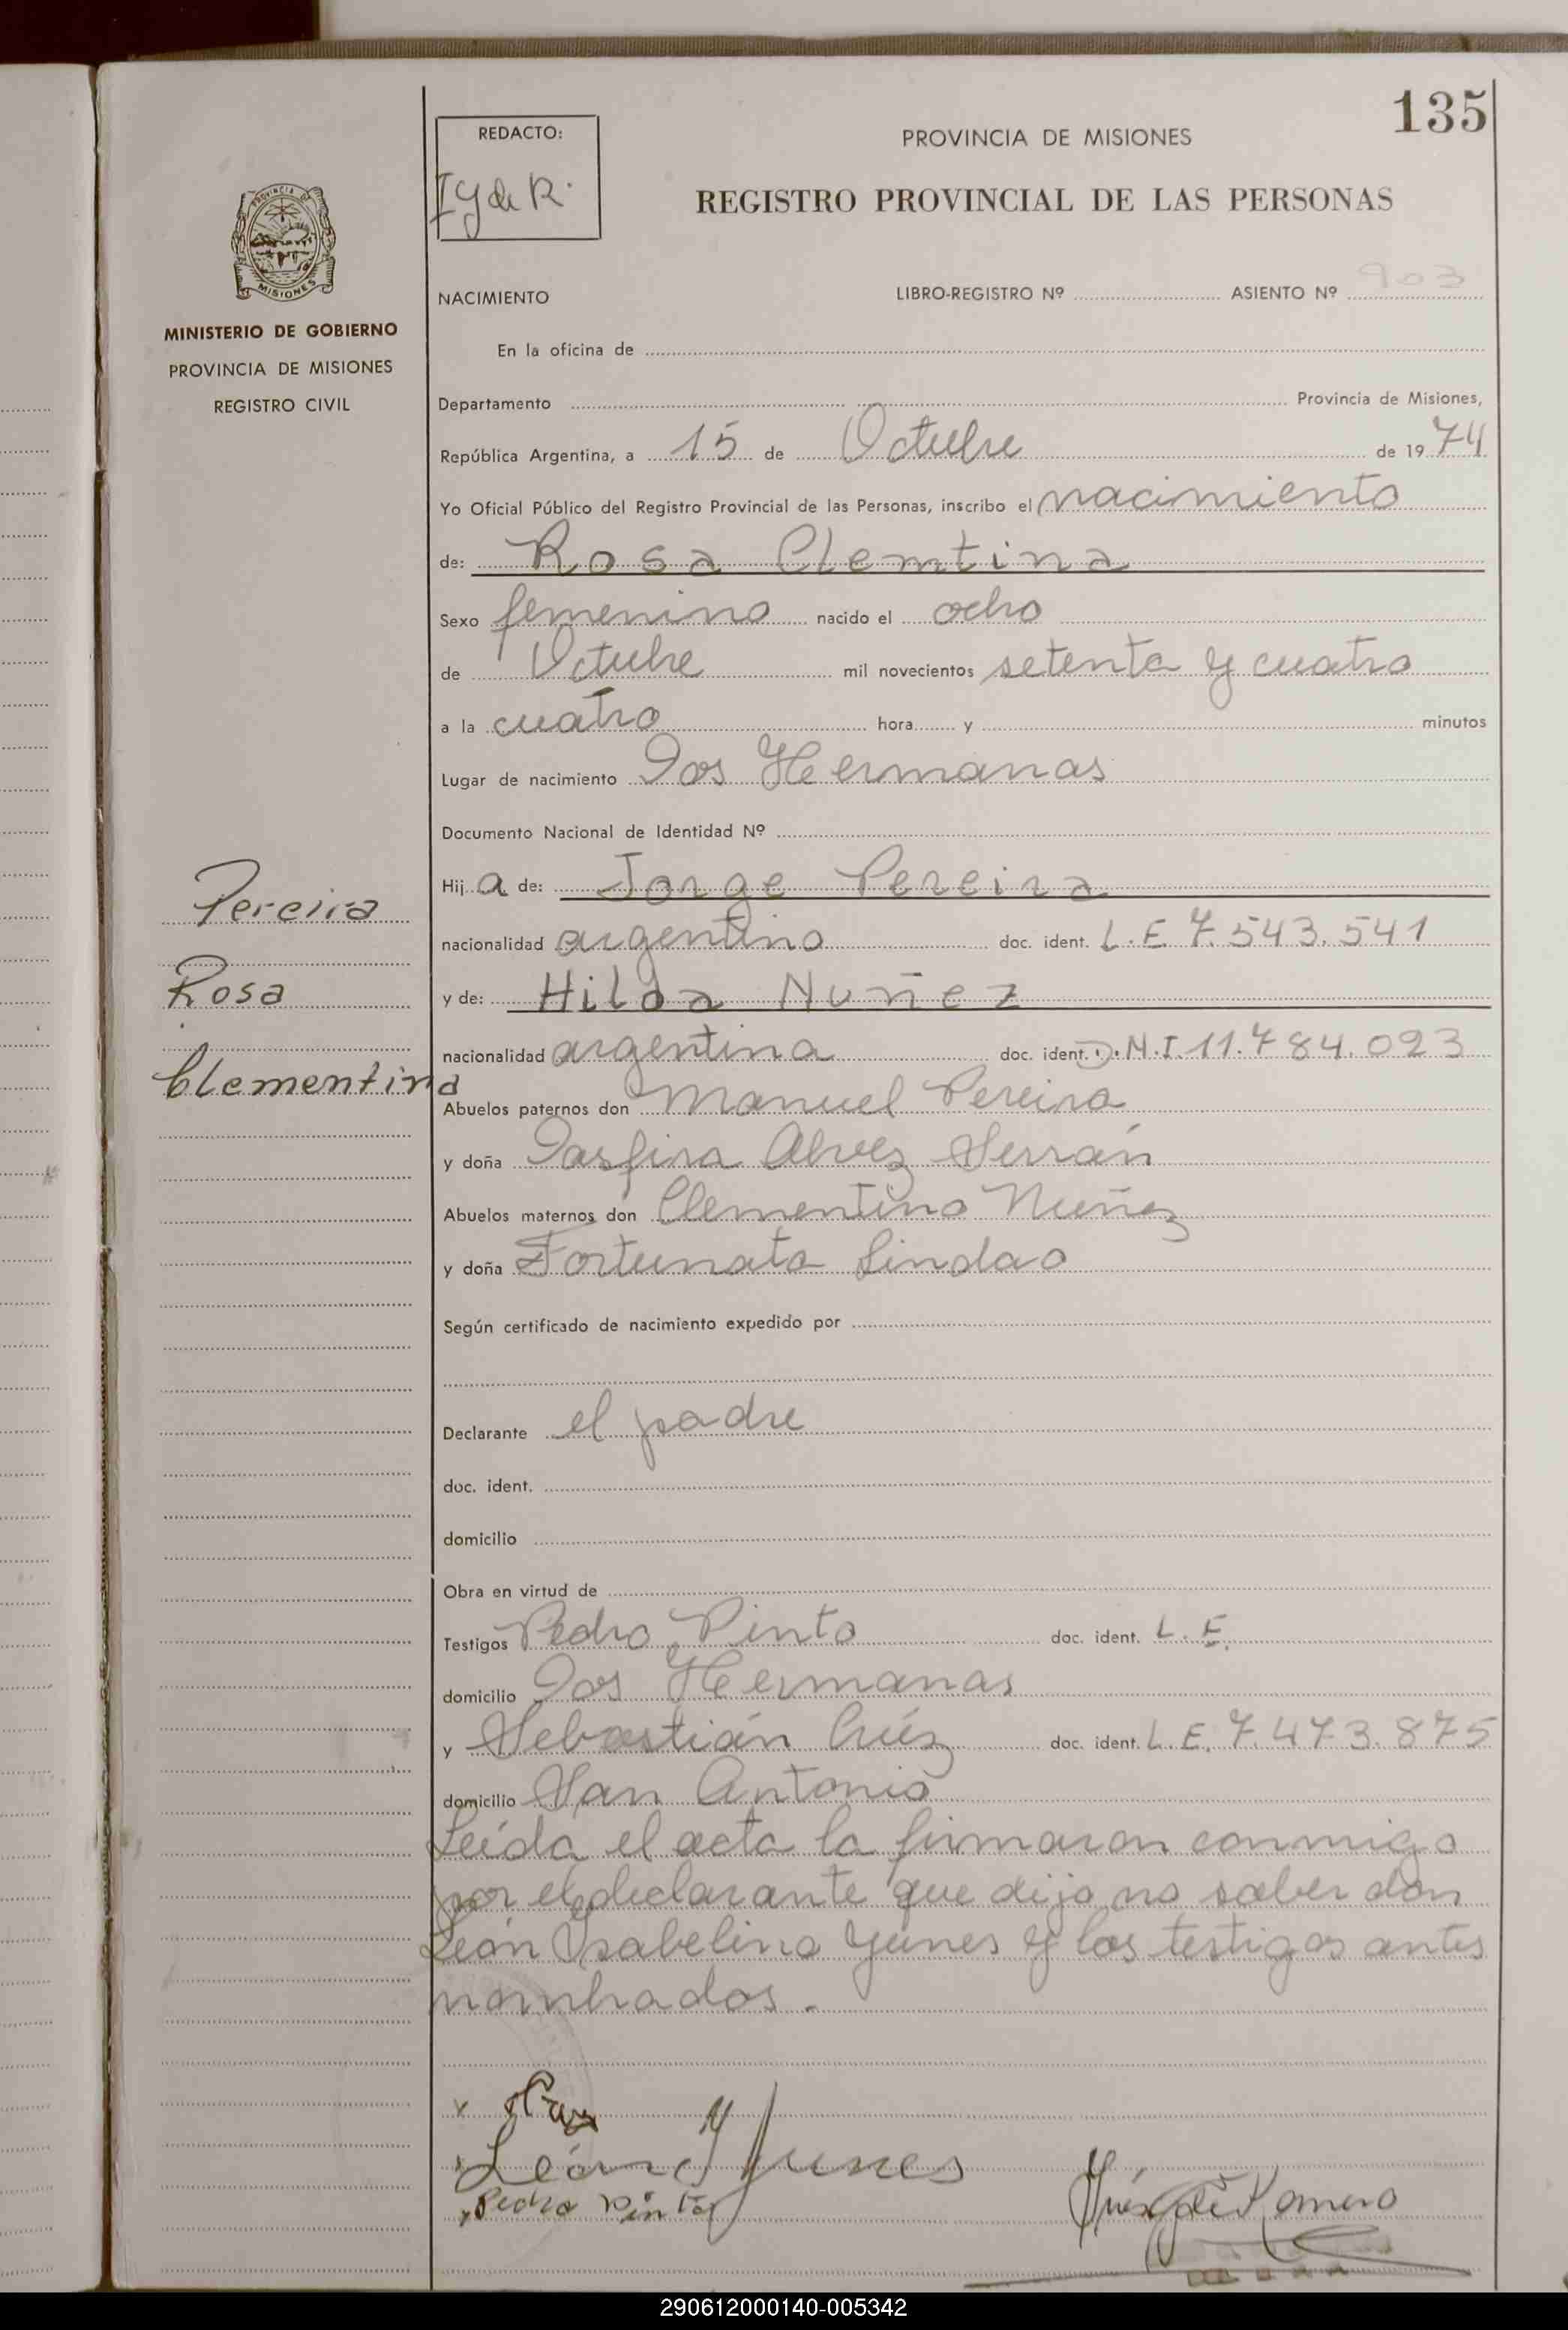 135
REDACTO:
I G de R.
PROVINCIA DE MISIONES
REGISTRO PROVINCIAL DE LAS PERSONAS
PROVINCIA DE
MISIONES
MINISTERIO DE GOBIERNO
PROVINCIA DE MISIONES
REGISTRO CIVIL
NACIMIENTO LIBRO-REGISTRO Nº ASIENTO Nº 903
En la oficina de
Departamento Provincia de Misiones,
República Argentina, a 15 de Octubre de 19 74
Yo Oficial Público del Registro Provincial de las Personas, inscribo el nacimiento
de: Rosa Clemtina
Sexo femenino nacido el ocho
de Octubre mil novecientos setenta y cuatro
a la cuatro hora y minutos
Lugar de nacimiento Dos Hermanas
Documento Nacional de Identidad Nº
Hij a de: Jorge Pereira
nacionalidad argentino doc. ident. L.E 7.543.541
y de: Hilda Nuñez
nacionalidad argentina doc. ident. D.N.I. 11.784.023
Pereira
Rosa
Clementina
Abuelos paternos don Manuel Pereira
y doña Alvez Serrán
Abuelos maternos don Clementino Nuñez
y doña Fortunata Lindao
Según certificado de nacimiento expedido por
Declarante el padre
doc. ident.
domicilio
Obra en virtud de
Testigos Pedro Pinto doc. ident. L.E.
domicilio Dos Hermanas
y Sebastián Crúz doc. ident. L.E. 7.473.875
domicilio San Antonio
Leída el acta la firmaron conmigo
por el declarante que dijo no saber don
León Ysabelino Yunes y los testigos antes
nombrados.
León Y Yunes
Pedro Pinto
Inés G de Romero
290612000140-005342